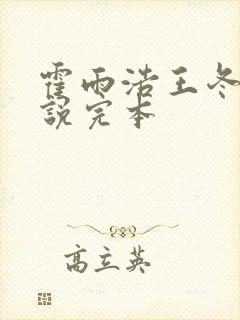 霍雨浩王冬
說完本
高立英